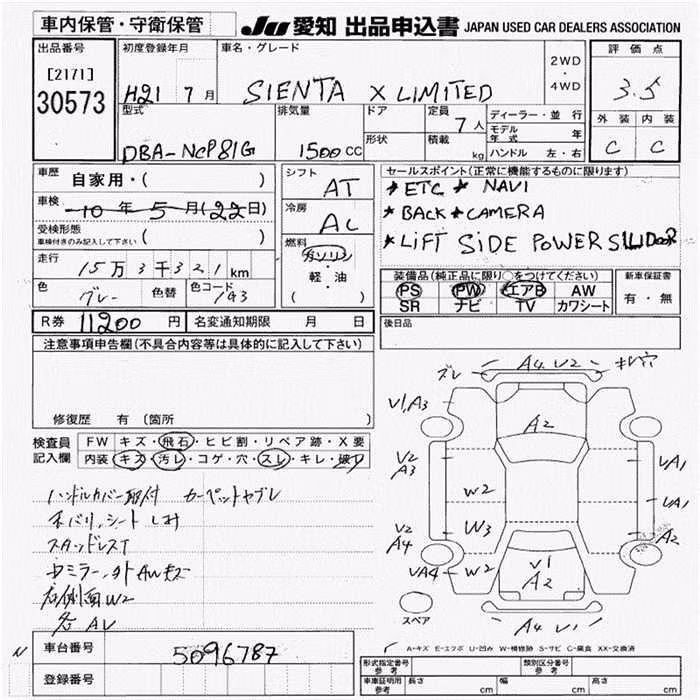 車内保管・守衛保管
JU 愛知 出品申込書 JAPAN USED CAR DEALERS ASSOCIATION
出品番号
[2171]
30573
初度登録年月
H21 7月
車名・グレード
SIENTA X LIMITED
2WD
・
4WD
評価点
3.5
外装 内装
C C
型式
DBA-NCP81G
排気量
1500cc
ドア
形状
定員
7人
積載
kg
ディーラー・並行
モデル年式 年
ハンドル 左・右
車歴
自家用・( )
車検
10年5月(22日)
受検形態
車検付きのみ記入して下さい ( )
走行
15万3千321km
色
グレー
色替
色コード
1G3
シフト
AT
冷房
AC
燃料
ガソリン
・
軽・油
( )
セールスポイント(正常に機能するものに限ります)
★ETC ★NAVI
★BACK★CAMERA
★LIFT SIDE POWER SLIDOOR
装備品(純正品に限り○をつけてください)
PS PW エアB AW
SR ナビ TV カワシート
新車保証書
有・無
R券 11200円 名変通知期限 月 日
後日品
注意事項申告欄(不具合内容等は具体的に記入して下さい)
修復歴 有 (箇所 )
検査員記入欄
FW キズ・飛石・ヒビ割・リペア跡・X要
内装 キズ・汚レ・コゲ・穴・スレ・キレ・破レ
ハンドルカバー取付 カーペットヤブレ
シートシミ
右側面W2
各AV
ズレ A4 V2 穴
V1,A3
A2
V2
A3
W2
VA1
VA1
V2
A4
W3
A2
VA4
W2
V1
A2
スペア
A4 V1
A-キズ E-エクボ U-凹み W-補修跡 S-サビ C-腐食 XX-交換済
車台番号
5096787
登録番号
形式指定番号
参考
類別区分番号
参考
車庫証明用
参考
長さ cm
幅 cm
高さ cm